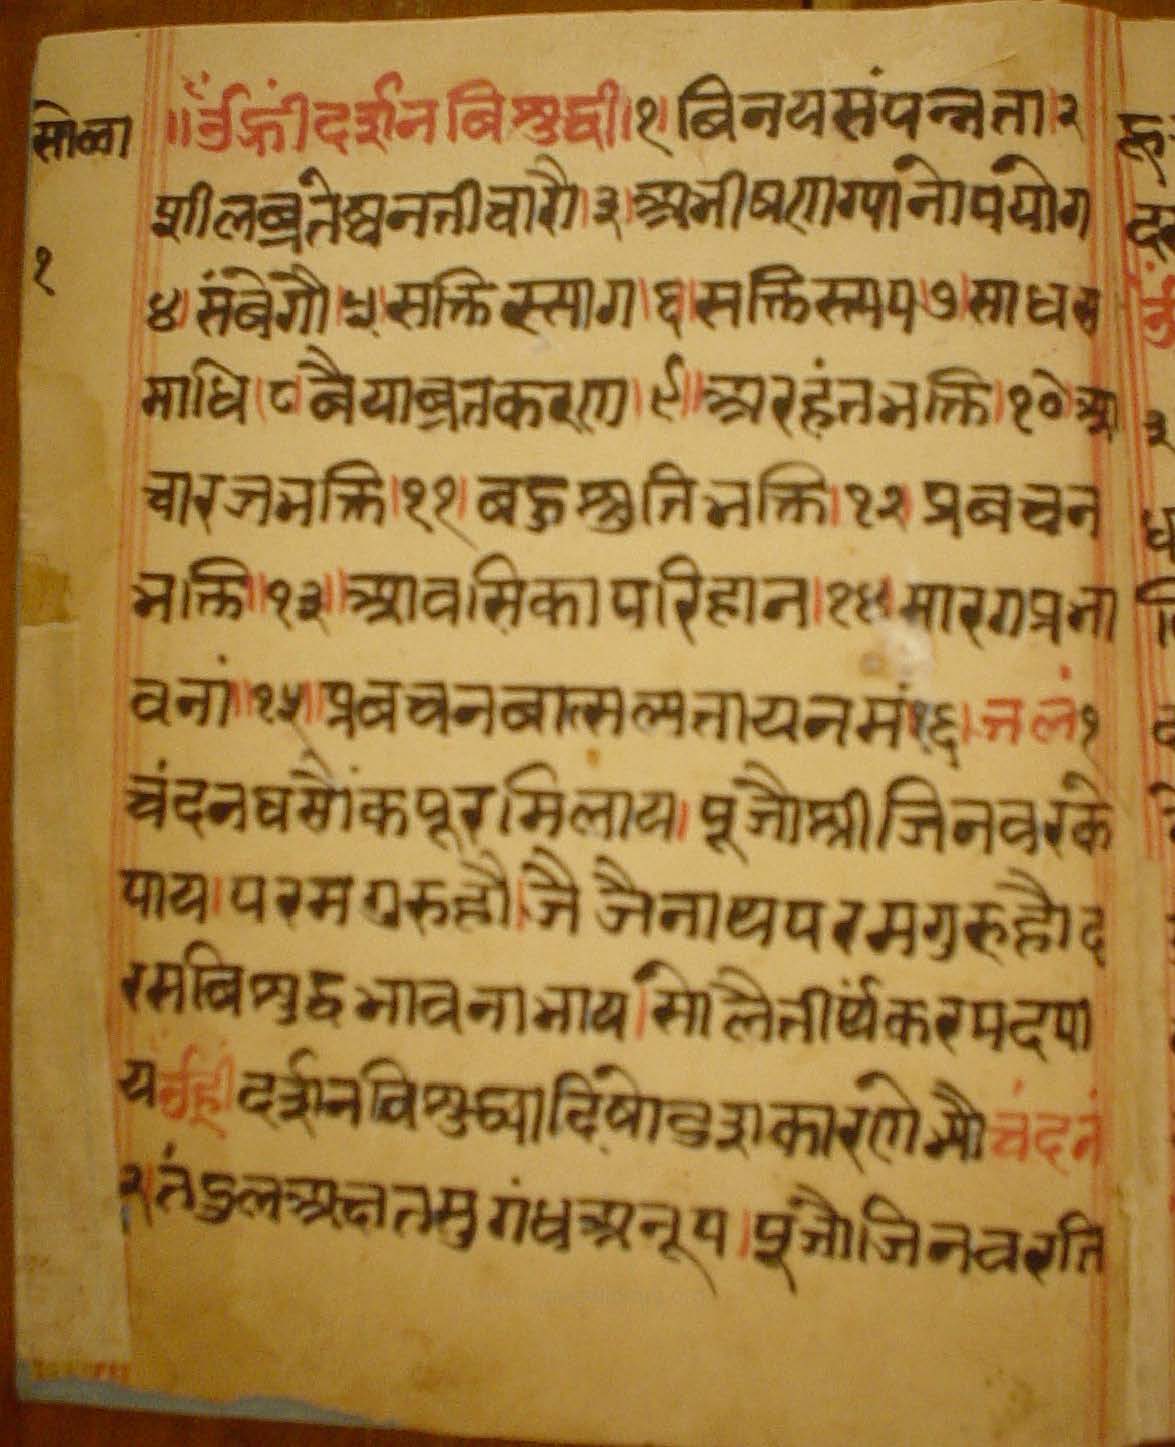 सोला
१
॥ॐ ह्रीं दर्शनविशुद्धी।१।विनयसंपन्नता।२
शीलब्रतेष्वनतीचारौ।३।अभीषणग्यांनोपयोग
४।संबेगौ।५।सक्तिस्त्याग।६।सक्तिस्तप।७।साधस
माधि।८।बैयाब्रतकरण।९॥अरहंतभक्ति।१०आ
चारजभक्ति।११।बहुश्रुतिभक्ति।१२।प्रबचन
भक्ति॥१३॥आवसिकापरिहान।१४।मारगप्रभा
वनां॥१५॥प्रबचनबात्सलत्तायनमं१६।जलं१
चंदनघसौंकपूरमिलाय।पूजौश्रीजिनवरके
पाय।परमगुरुहौ।जै जैनाथपरमगुरुहौ।द
रसबिशुद्धभावनाभाय।सोलैतीर्थंकरपदपा
यॐह्रीदर्शनविशुध्यादिंषोडशकारणेभौचंदनं
२।तंडुलअक्षतसुगंधअनूप।पूजौजिनवरति